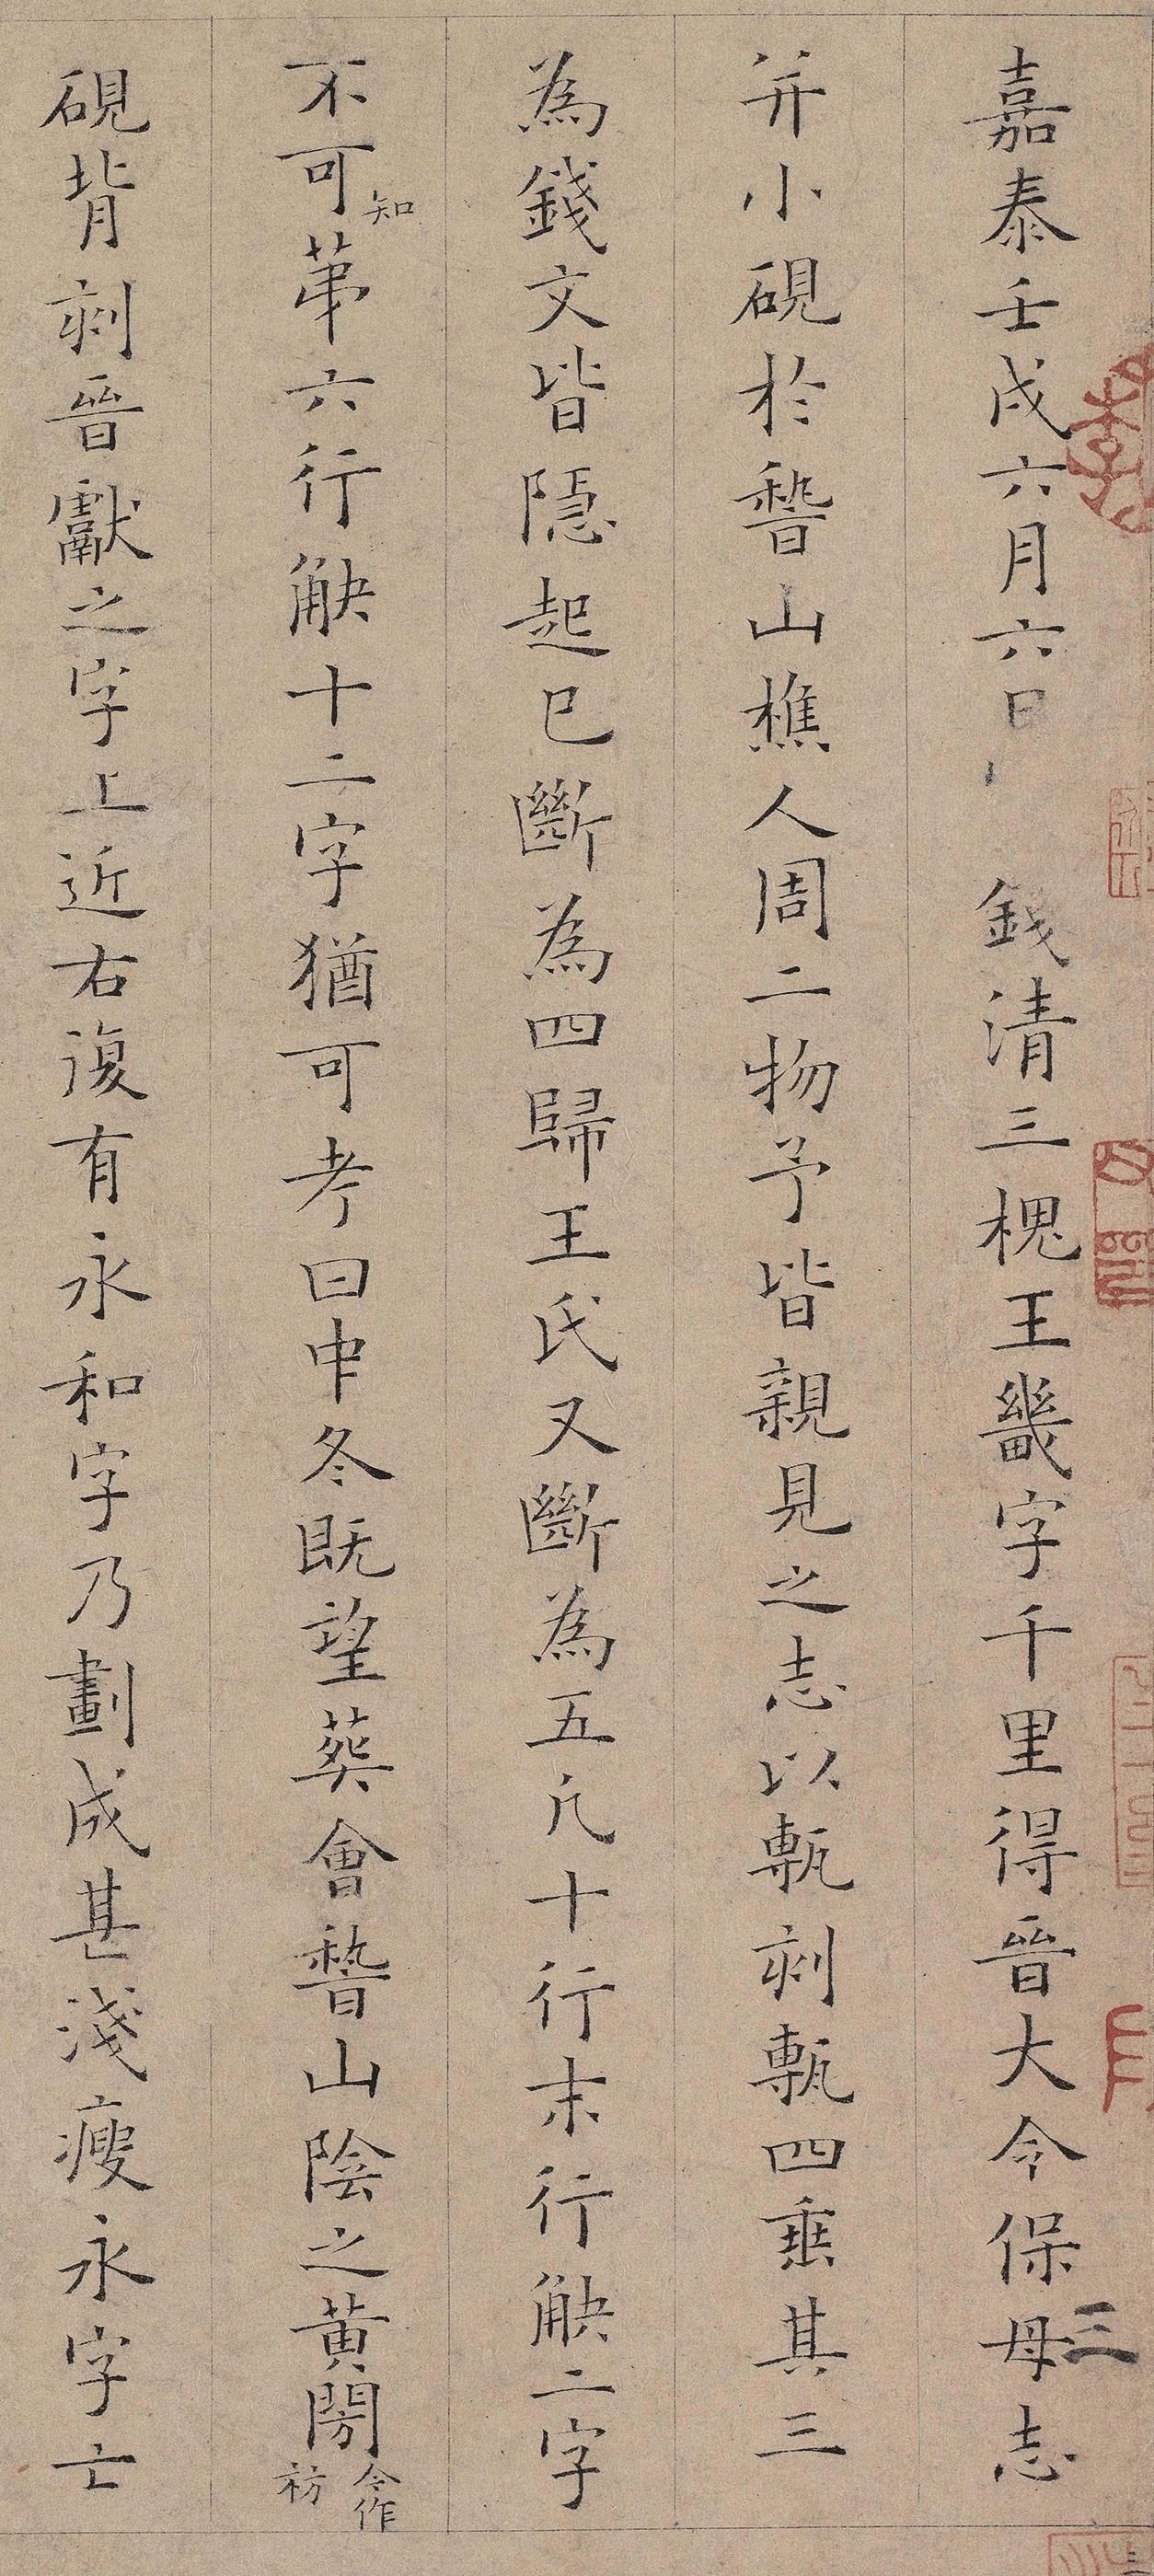 嘉泰壬戌六月六日 錢清三槐王畿字千里得晉大令保母志
并小硯於嵇山樵人周二物予皆親見之志以甎刻甎四垂其三
為錢文皆隱起已斷為四歸王氏又斷為五凡十行末行觖二字
不可知苐六行觖十二字猶可考曰中冬既望葬會嵇山陰之黃閍今作祊
硯背刻晉獻之字上近右復有永和字乃劃成甚淺瘦永字亡
三